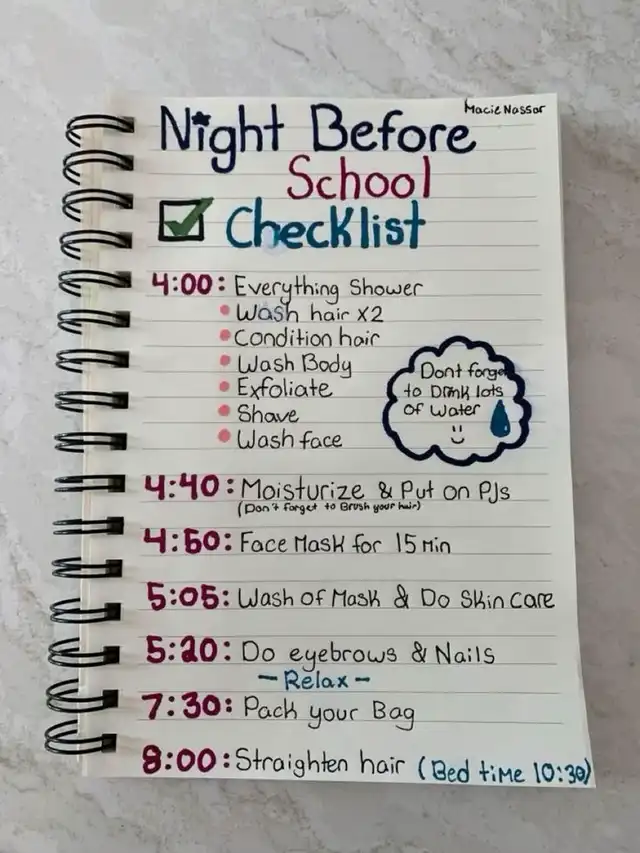 Macie Nassar
Night Before
School
Checklist
4:00: Everything Shower
Wash hair x2
Condition hair
Wash Body
Exfoliate
Shave
Wash face
Dont forget
to Drink lots
of water
4:40: Moisturize & Put on PJs
(Don't forget to Brush your hair)
4:50: Face Mask for 15 Min
5:05: Wash of Mask & Do Skin care
5:20: Do eyebrows & Nails
- Relax -
7:30: Pack your Bag
8:00: Straighten hair (Bed time 10:30)